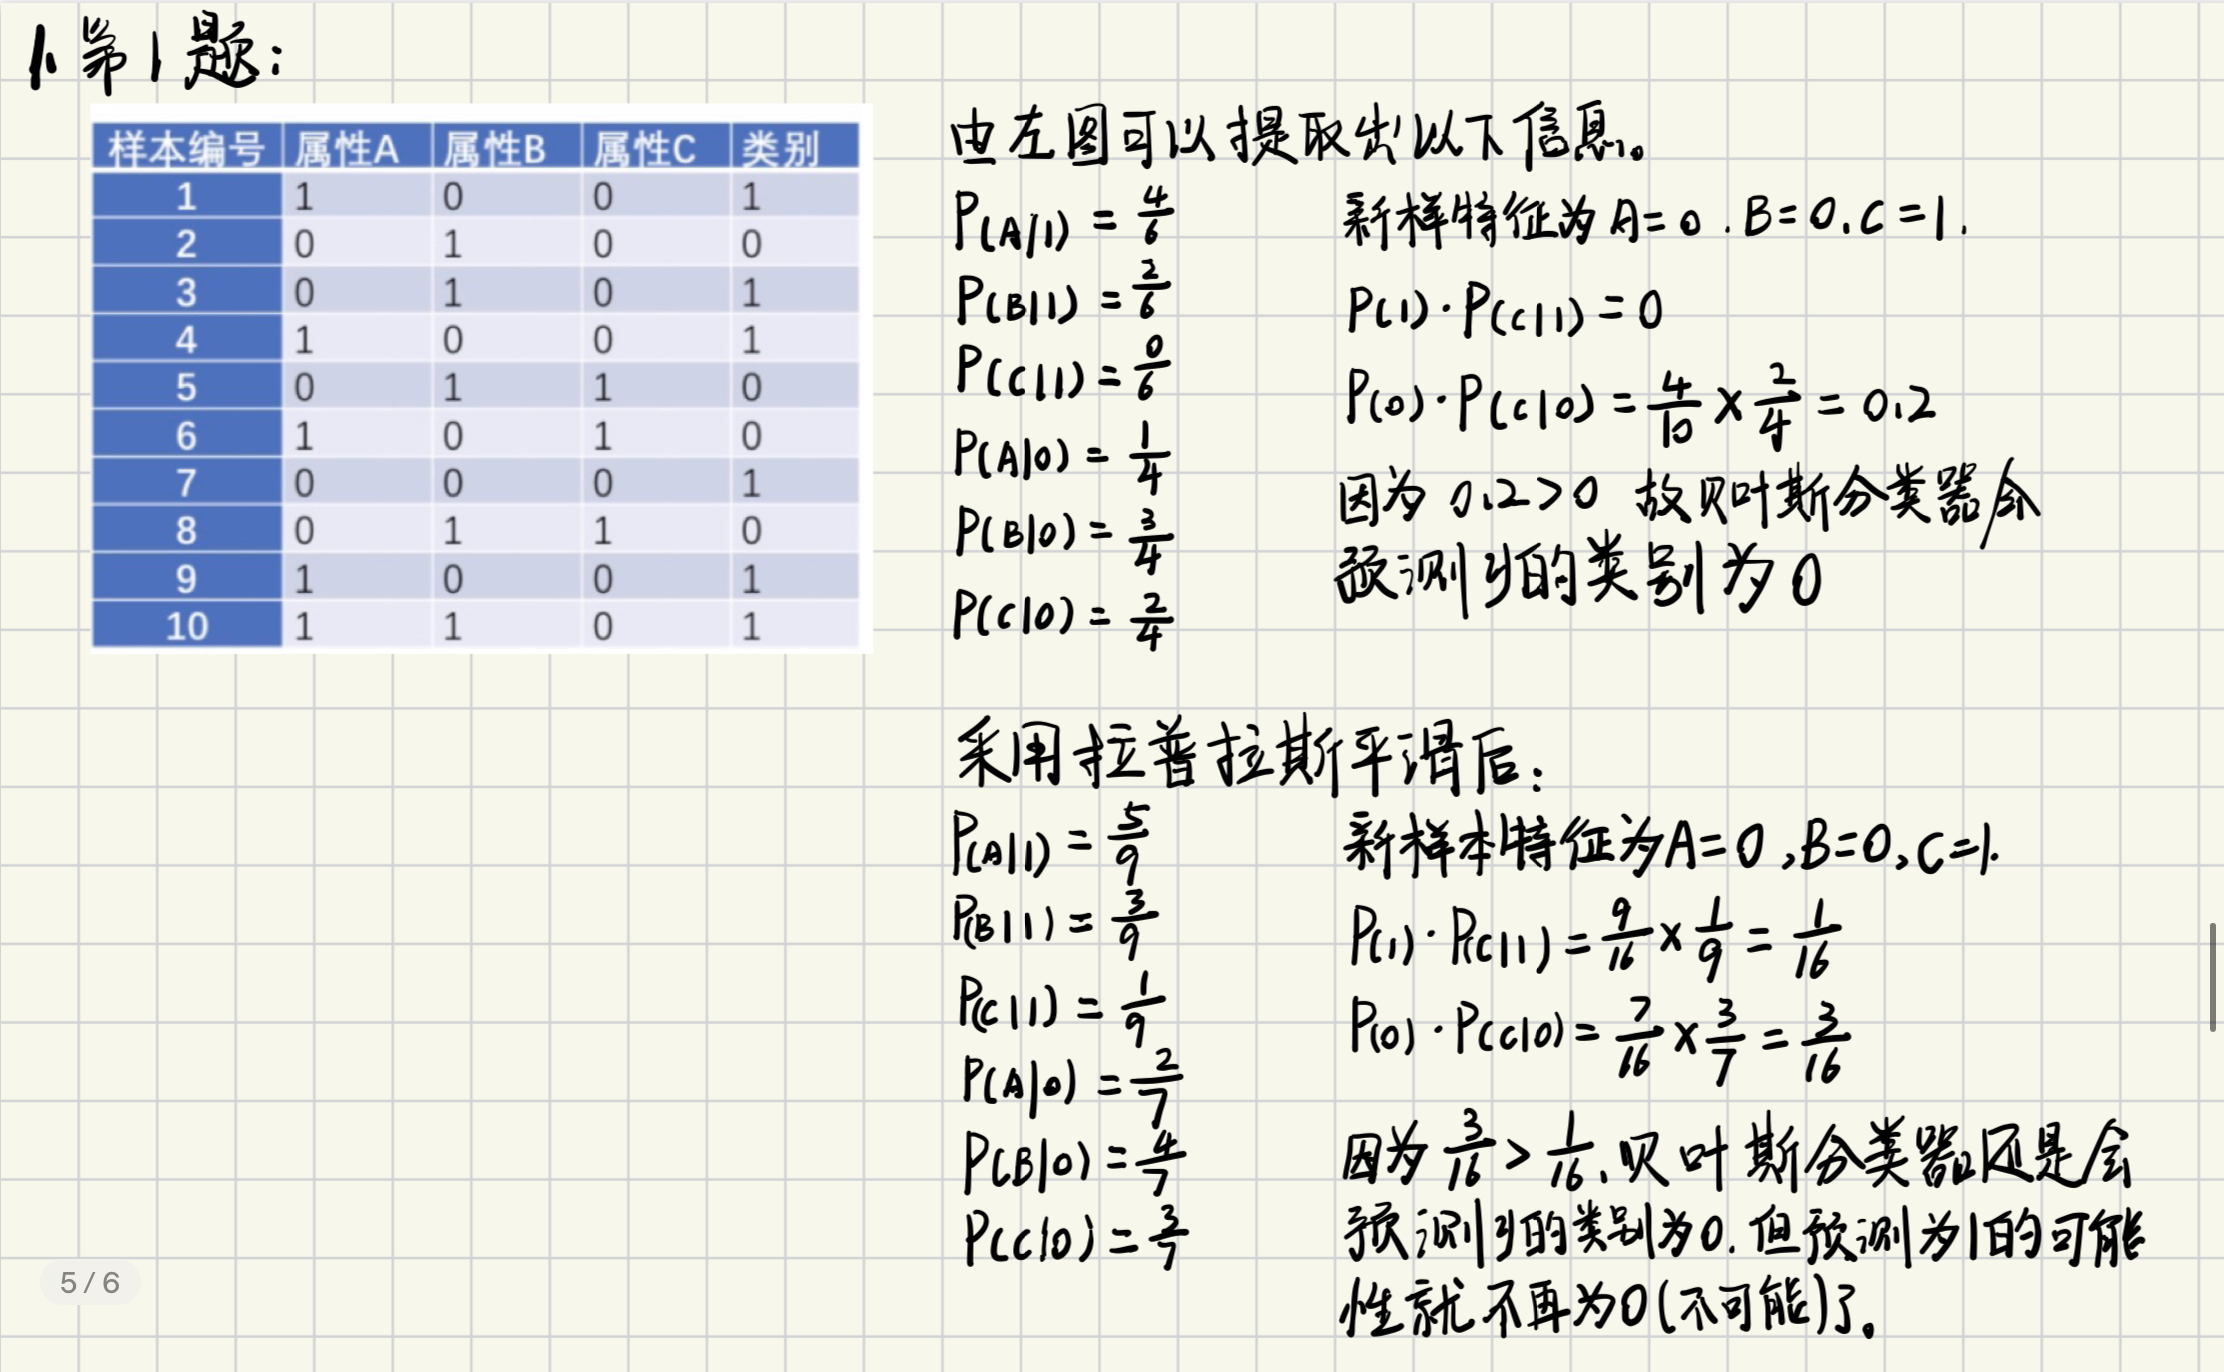 1. 第1题:
样本编号 属性A 属性B 属性C 类别
1 1 0 0 1
2 0 1 0 0
3 0 1 0 1
4 1 0 0 1
5 0 1 1 0
6 1 0 1 0
7 0 0 0 1
8 0 1 1 0
9 1 0 0 1
10 1 1 0 1
由左图可以提取出以下信息。
P(A|1) = 4/6
P(B|1) = 2/6
P(C|1) = 0/6
P(A|0) = 1/4
P(B|0) = 3/4
P(C|0) = 2/4
新样特征为 A=0 . B=0. C=1.
P(1)·P(C|1) = 0
P(0)·P(C|0) = 4/10 × 2/4 = 0.2
因为 0.2>0 故贝叶斯分类器会
预测y的类别为0
采用拉普拉斯平滑后:
P(A|1) = 5/9
P(B|1) = 3/9
P(C|1) = 1/9
P(A|0) = 2/7
P(B|0) = 4/7
P(C|0) = 3/7
新样本特征为A=0,B=0,C=1.
P(1)·P(C|1) = 9/16 × 1/9 = 1/16
P(0)·P(C|0) = 7/16 × 3/7 = 3/16
因为 3/16 > 1/16,贝叶斯分类器还是会
预测y的类别为0.但预测为1的可能
性就不再为0(不可能)了。
5 / 6